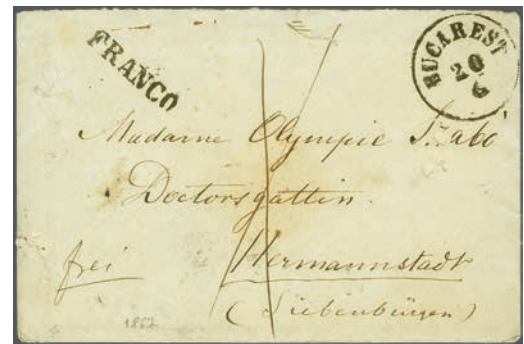 FRANCO
BUCAREST
20
6
Madame Olympie Szabó
Doctorsgattin.
frei
Hermannstadt
(Siebenbürgen)
1867